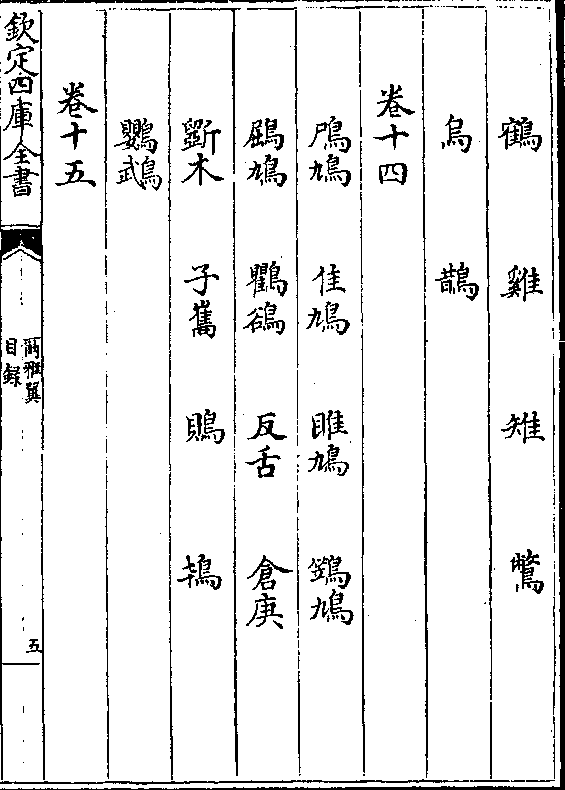 鶴 雞 雉 鷩
烏 鵲
卷十四
鳲鳩 隹鳩 雎鳩 鷞鳩
鶌鳩 鸜鵒 反舌 倉庚
斵木 子巂 鵙
鸚䳇
卷十五
欽定四庫全書
爾雅翼
目錄
五